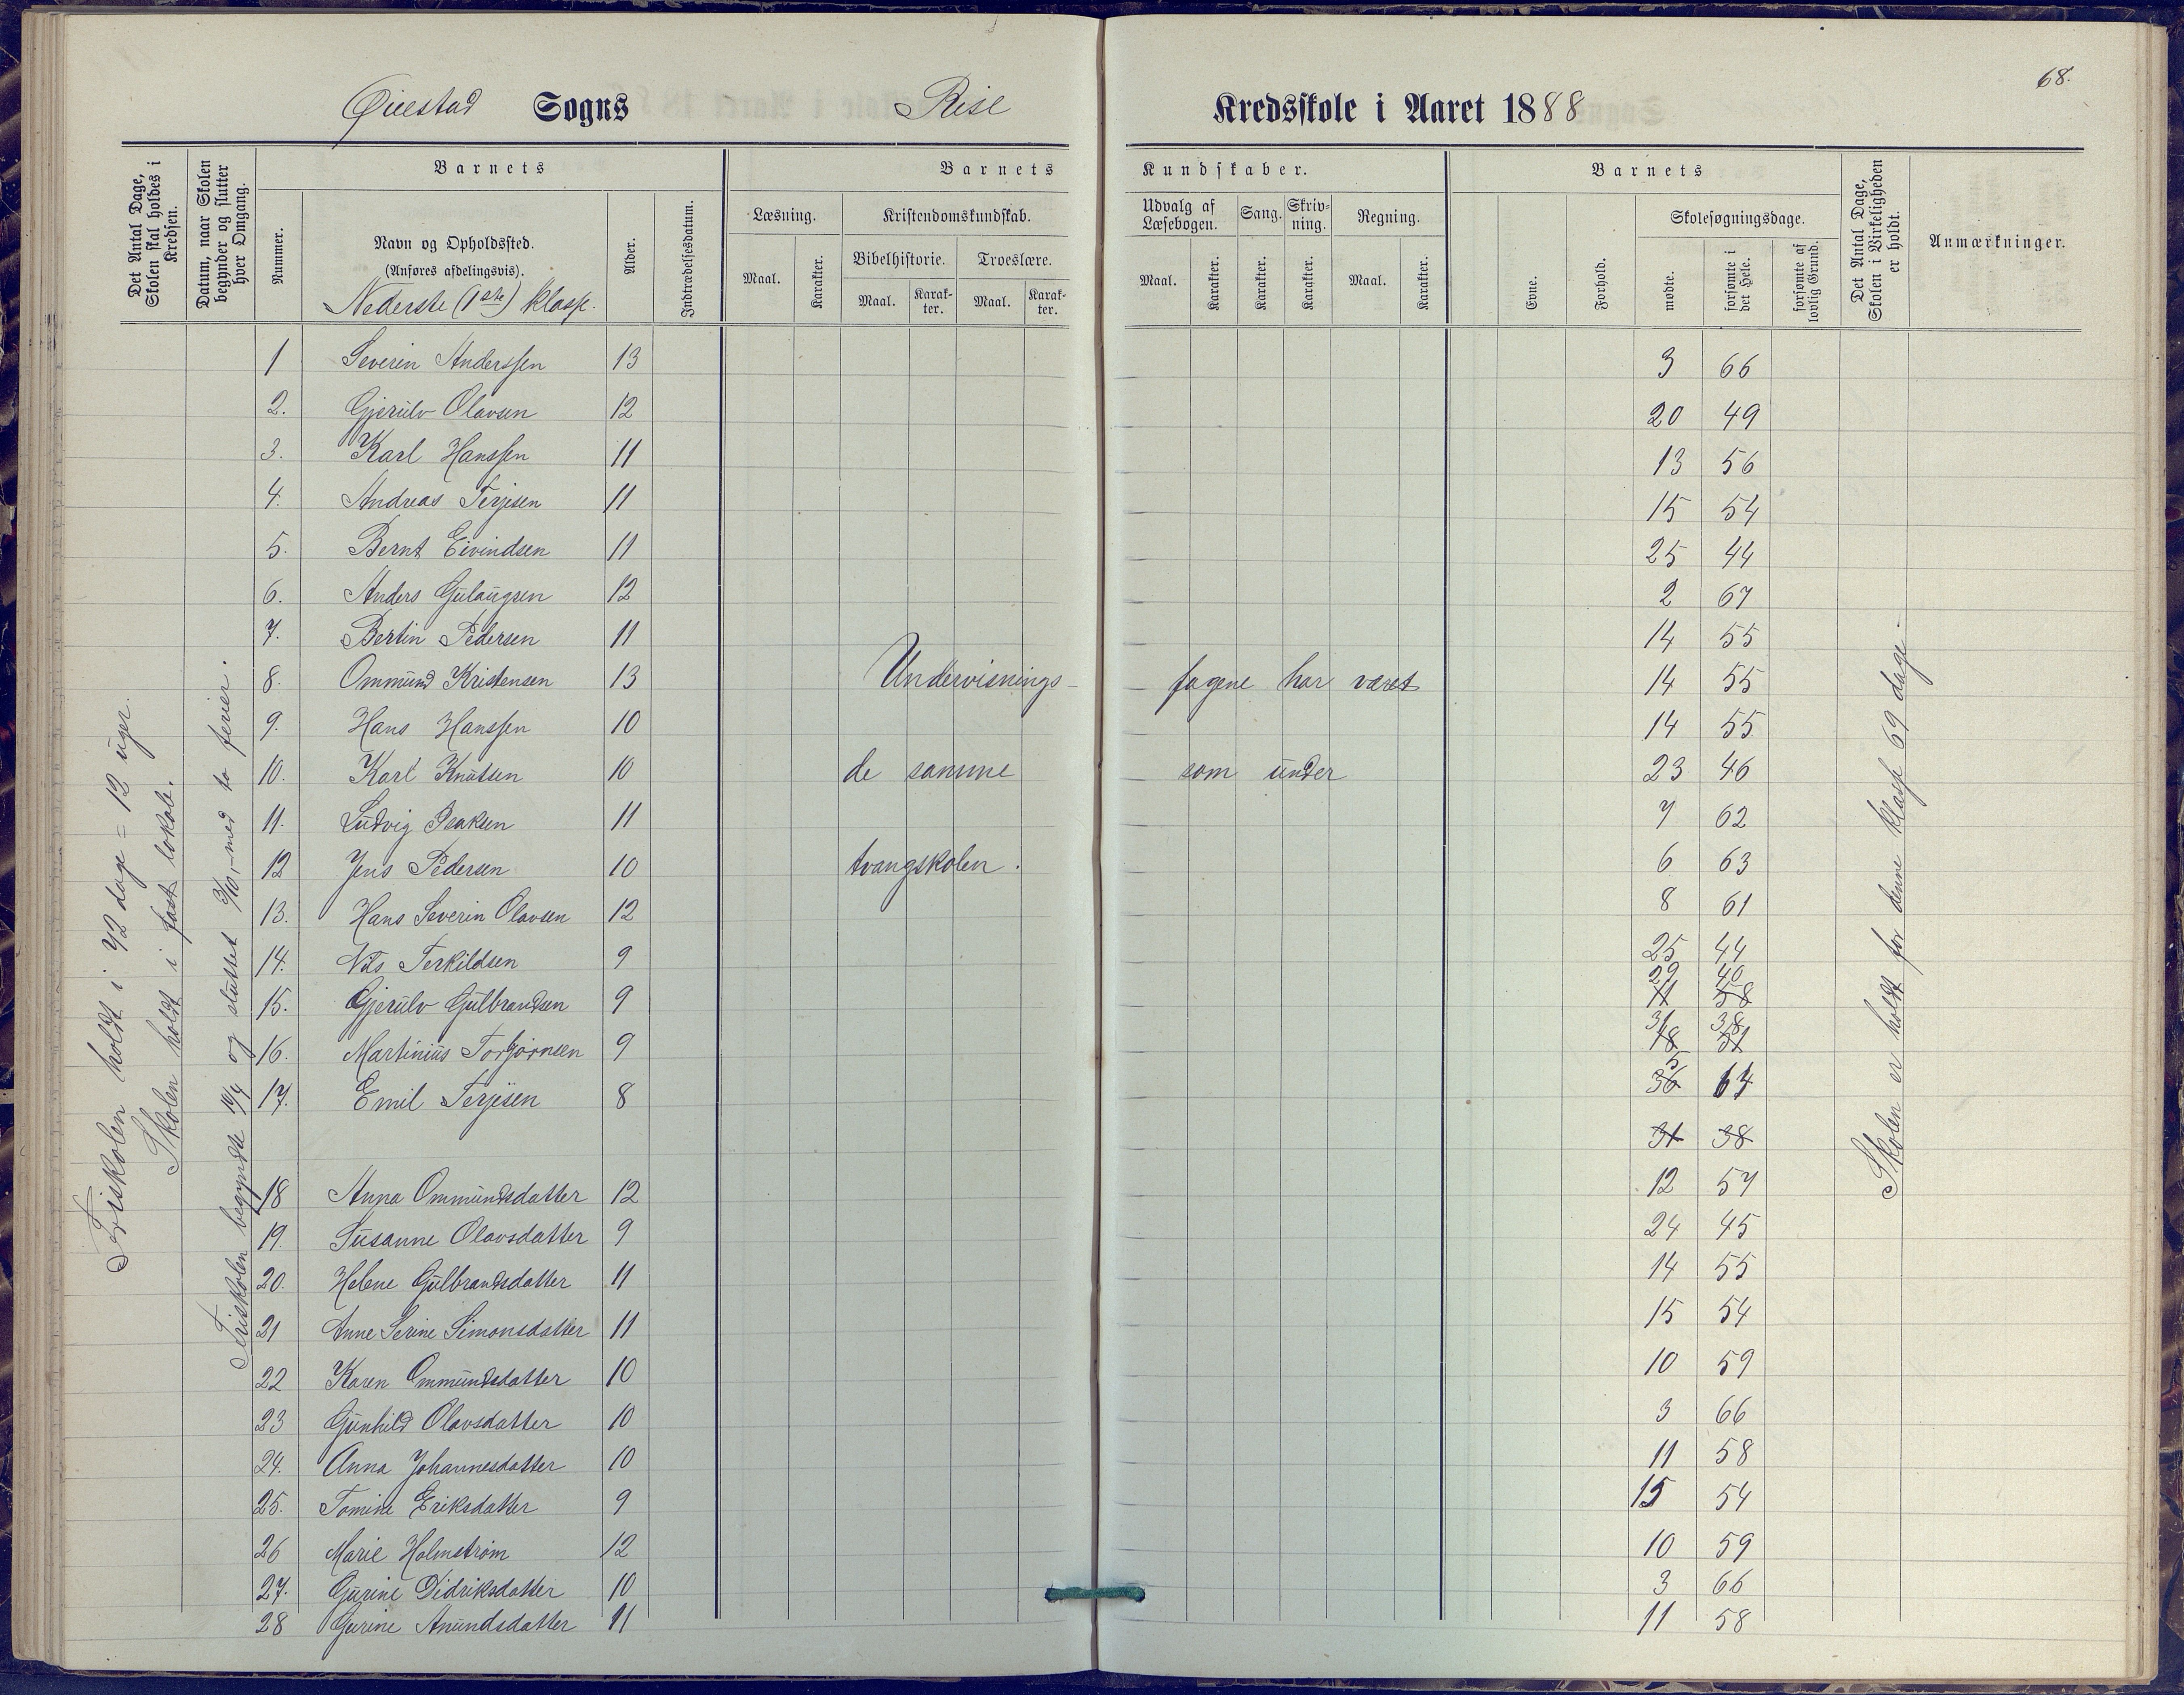 68.
Øiestad Sogns Rise Kredsskole i Aaret 1888
Det Antal Dage, Skolen skal holdes i Kredsen.
Datum, naar Skolen begynder og slutter hver Omgang.
Barnets
Nummer.
Navn og Opholdssted.
(Anføres afdelingsvis).
Nederste (1ste) klasse.
Alder.
Indtrædelsesdatum.
Barnets Kundskaber.
Læsning.
Maal. Karakter.
Kristendomskundskab.
Bibelhistorie. Troeslære.
Maal. Karakter. Maal. Karakter.
Udvalg af Læsebogen.
Maal. Karakter.
Sang.
Karakter.
Skrivning.
Karakter.
Regning.
Maal. Karakter.
Barnets
Evne.
Forhold.
Skolesøgningsdage.
mødte.
forsømte i det Hele.
forsømte af lovlig Grund.
Det Antal Dage, Skolen i Virkeligheden er holdt.
Anmærkninger.
Friskolen holdt i 72 dage = 12 uger.
Skolen holdt i fast lokale.
Friskolen begyndte og sluttet 3/10, med to ferier.
1 Severin Anderssen 13 3 66
2. Gjerulv Olavsen 12 20 49
3. Karl Hanssen 11 13 56
4. Andreas Terjesen 11 15 54
5. Bernt Eivindsen 11 25 44
6. Anders Gulaugsen 12 2 67
7. Bertin Pedersen 11 14 55
8. Ommund Kristensen 13 Undervisnings- fagene har været 14 55
9. Hans Hanssen 10 14 55
10. Karl Knutsen 10 de samme som under 23 46
11. Ludvig Isaksen 11 7 62
12 Jens Pedersen 10 tvangskolen. 6 63
13. Hans Severin Olavsen 12 8 61
14. Nils Terkildsen 9 25 44
15. Gjerulv Gulbrandsen 9 29 40 11 58
16. Martinius Torbjørnsen 9 31 38 18 51
17. Emil Terjesen 8 5 36 64
31 38
18 Anna Ommundsdatter 12 12 57
19. Susanne Olavsdatter 9 24 45
20. Helene Gulbrandsdatter 11 14 55
21 Anne Serine Simonsdatter 11 15 54
22 Karen Ommundsdatter 10 10 59
23 Gunhild Olavsdatter 10 3 66
24. Anna Johannesdatter 10 11 58
25. Tomine Eriksdatter 9 15 54
26 Marie Holmstrøm 12 10 59
27. Gurine Didriksdatter 10 3 66
28 Gurine Anundsdatter 11 11 58
Skolen er holdt for denne klasse 69 dage.